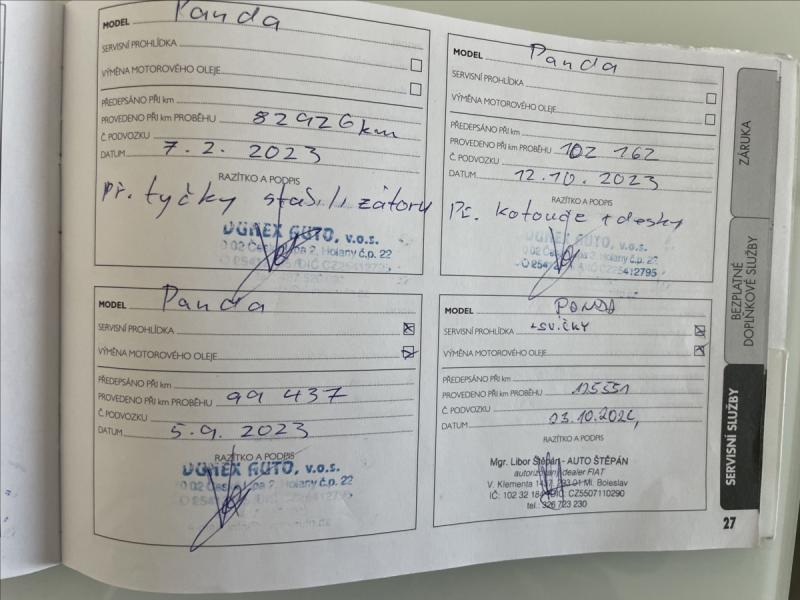 MODEL Panda
SERVISNÍ PROHLÍDKA
VÝMĚNA MOTOROVÉHO OLEJE
PŘEDEPSÁNO PŘI km
PROVEDENO PŘI km PROBĚHU 82926 km
Č. PODVOZKU
DATUM 7. 2. 2023
RAZÍTKO A PODPIS
př. tyčky stabili zátory
DUREX AUTO, v.o.s.
Holany č.p. 22
MODEL Panda
SERVISNÍ PROHLÍDKA
VÝMĚNA MOTOROVÉHO OLEJE
PŘEDEPSÁNO PŘI km
PROVEDENO PŘI km PROBĚHU 102 162
Č. PODVOZKU
DATUM 12.10. 2023
RAZÍTKO A PODPIS
Př. kotouče + desky
AUTO, v.o.s.
Holany č.p. 22
CZ25412795
MODEL Panda
SERVISNÍ PROHLÍDKA
VÝMĚNA MOTOROVÉHO OLEJE
PŘEDEPSÁNO PŘI km
PROVEDENO PŘI km PROBĚHU 99 437
Č. PODVOZKU
DATUM 5.9. 2023
RAZÍTKO A PODPIS
AUTO, v.o.s.
Holany č.p. 22
MODEL PANDA
SERVISNÍ PROHLÍDKA +SVÍČKY
VÝMĚNA MOTOROVÉHO OLEJE
PŘEDEPSÁNO PŘI km
PROVEDENO PŘI km PROBĚHU 125551
Č. PODVOZKU
DATUM 03.10.2024
RAZÍTKO A PODPIS
Mgr. Libor Štěpán - AUTO ŠTĚPÁN
autorizovaný dealer FIAT
V. Klementa 293 01 Ml. Boleslav
IČ: 102 32 DIČ: CZ5507110290
tel.: 326 723 230
ZÁRUKA
BEZPLATNÉ
DOPLŇKOVÉ SLUŽBY
SERVISNÍ SLUŽBY
27